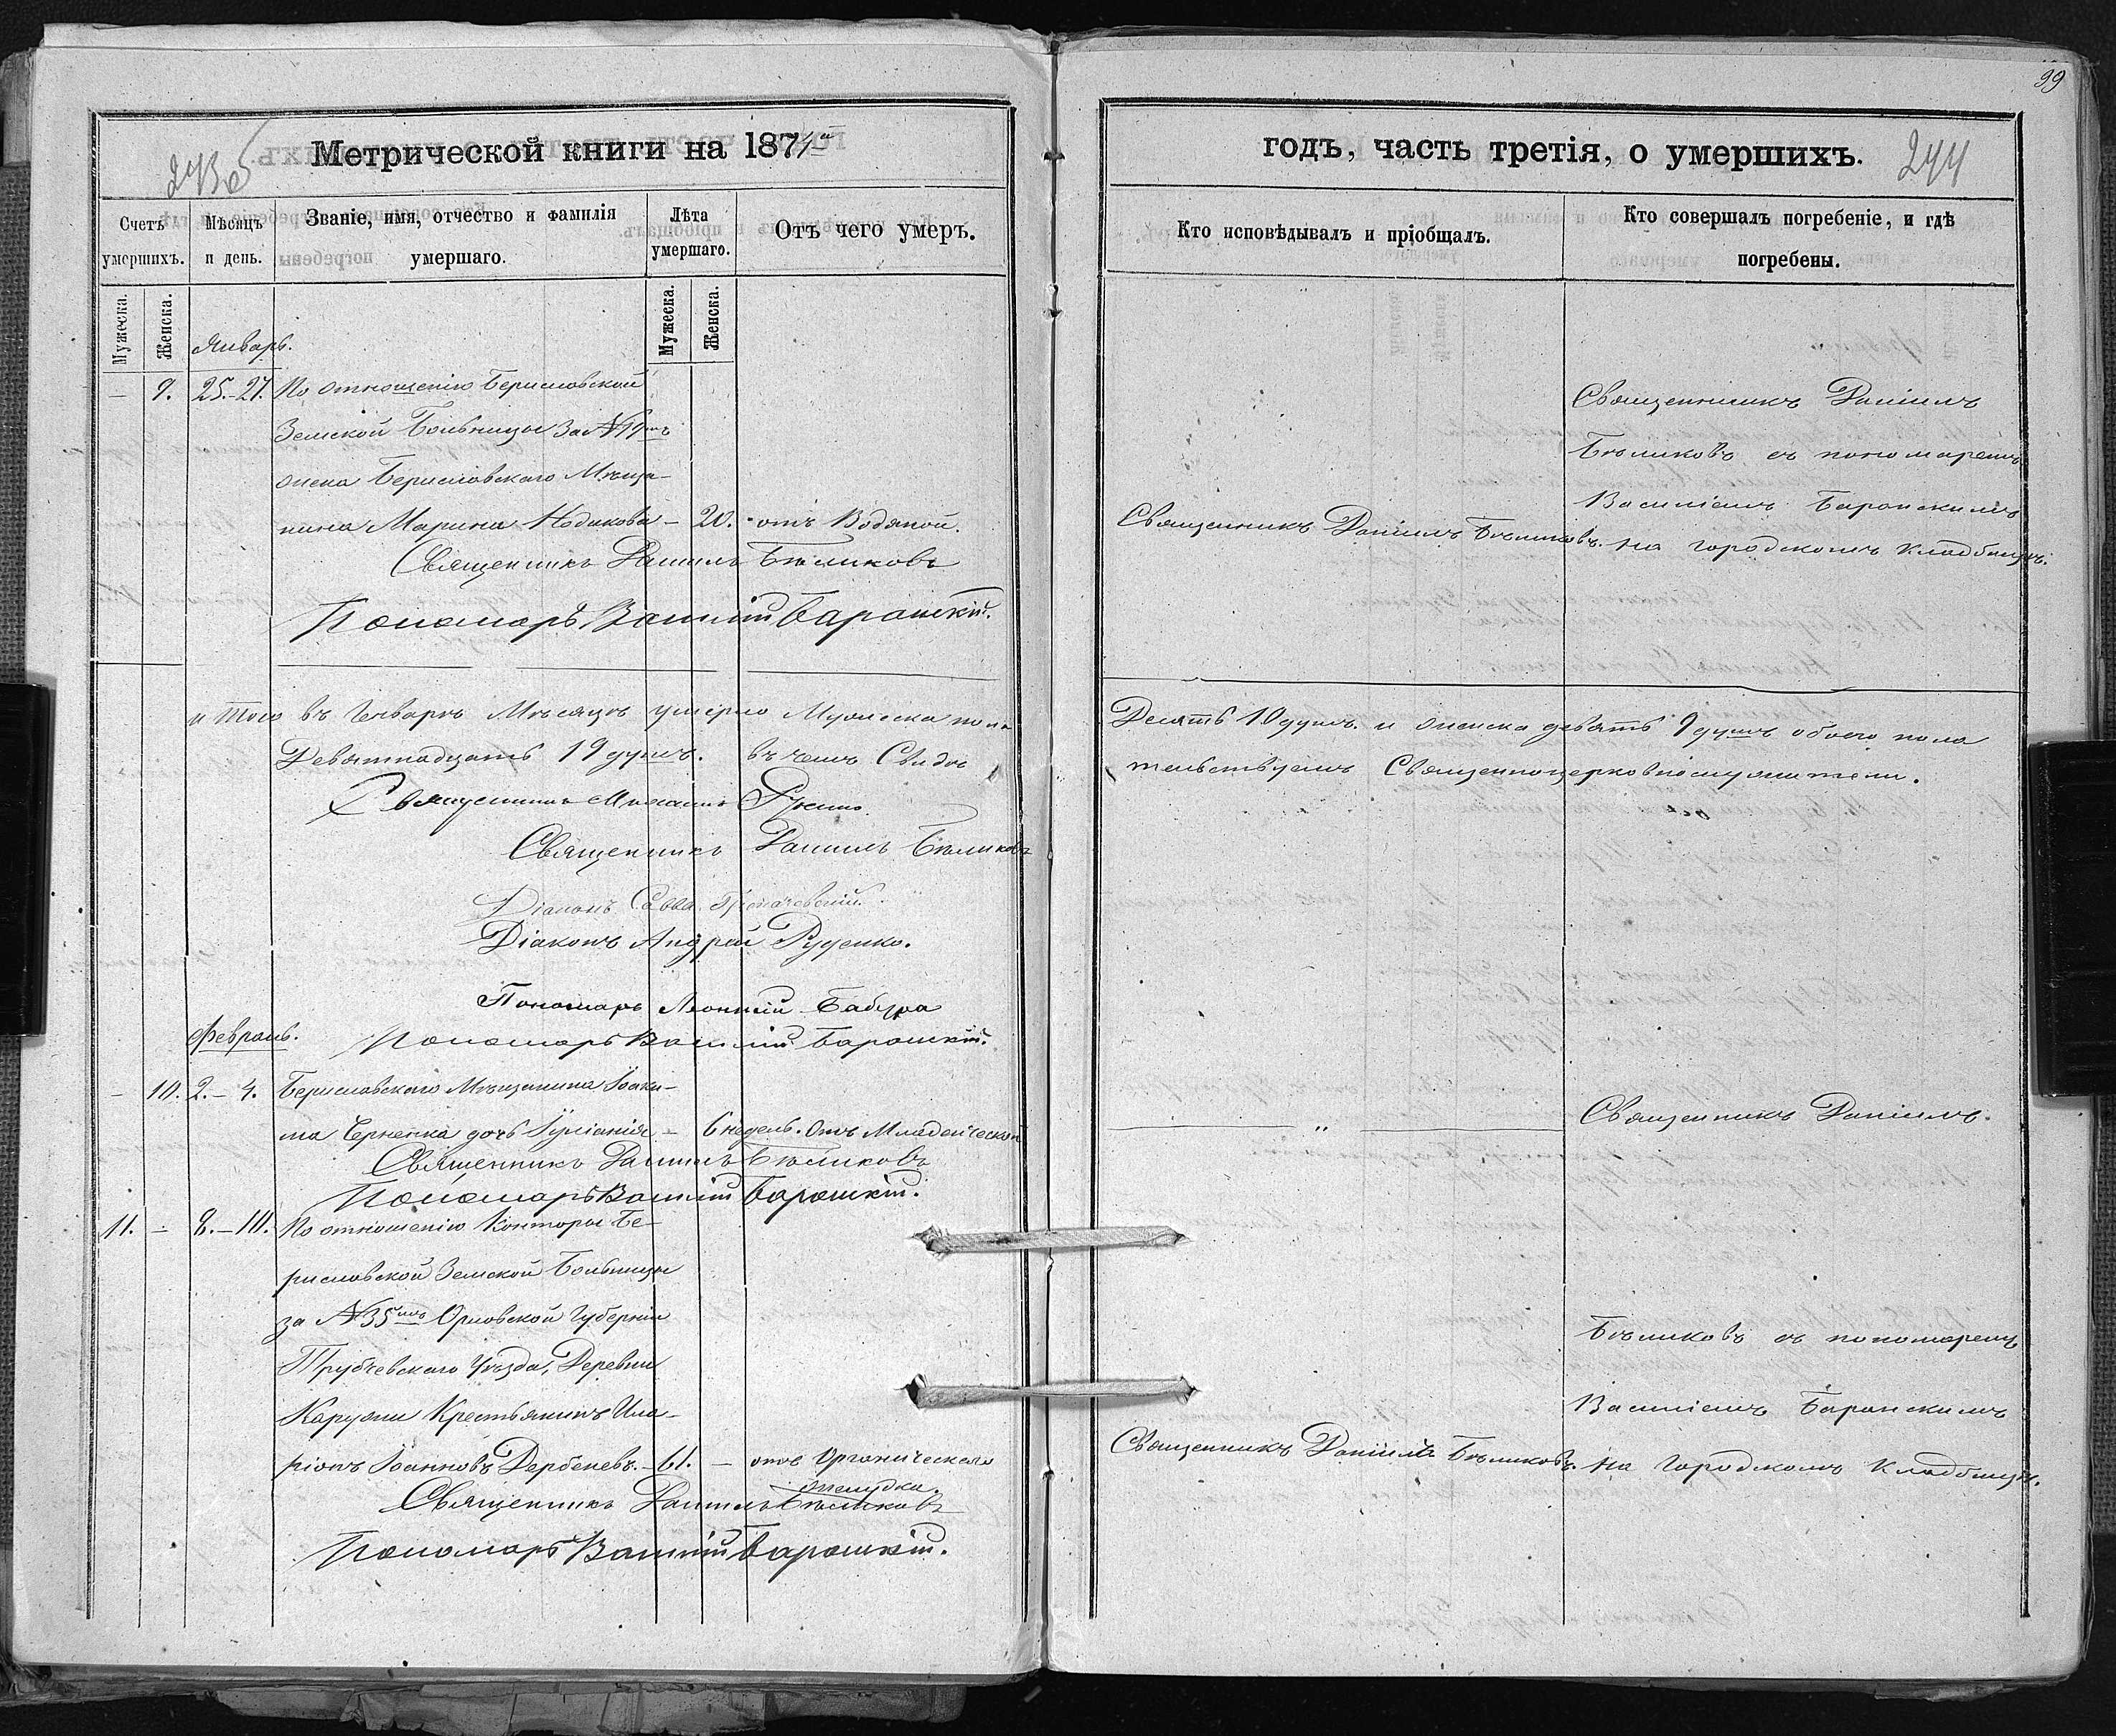 99
Метрической книги на 1871й
годъ, часть третія, о умершихъ.
244
Счетъ умершихъ.
Мѣсяцъ и день.
Званіе, имя, отчество и фамилія умершаго.
Лѣта умершаго.
Отъ чего умеръ.
Кто исповѣдывалъ и пріобщалъ.
Кто совершалъ погребеніе, и гдѣ погребены.
Мужеска.
Женска.
Мужеска.
Женска.
Январь.
— 9. 25.-27. По отношенію Бериславской
Земской Больницы За №19мъ
жена Бериславскаго Мѣща-
нина Марина Нодакова — 20. отъ Водяной.
Священникъ Даніилъ Бѣликовъ
Пономарь Василій Баранскій.
Священникъ Даніилъ Бѣликовъ.
Священникъ Даніилъ
Бѣликовъ съ пономаремъ
Василіемъ Баранскимъ
на городскомъ кладбищѣ.
итого въ Генварѣ Мѣсяцѣ умерло Мужеска пола
Десять 10 душъ. и женска девять 9 душъ обоего пола
Девятнадцать 19 душъ. въ чемъ Свидѣ
тельствуемъ Священноцерковнослужители.
Священникъ Михаилъ
Священникъ Даніилъ Бѣликовъ
Діаконъ Савва
Діаконъ Андрей Руденко.
Пономарь Леонтій Бабура
Пономарь Василій Баранскій.
Февраль.
— 10. 2.-4. Бериславскаго Мѣщанина Іоаки-
ма Черненка дочь Іуліанія — 6 недель. Отъ Младенческой
Священникъ Даніилъ Бѣликовъ
Пономарь Василій Баранскій.
— „ —
Священникъ Даніилъ
11. — 8.-10. По отношенію Конторы Бе-
риславской Земской Больницы
за №35мъ Орловской Губерніи
Трубчевскаго Уѣзда, Деревни
Крестьянинъ Ила-
ріонъ Іоанновъ Дербеневъ. — 61. — отъ Органическаго
желудка.
Священникъ Даніилъ Бѣликовъ
Пономарь Василій Баранскій.
Священникъ Даніилъ Бѣликовъ.
Бѣликовъ съ пономаремъ
Василіемъ Баранскимъ
на Городскомъ Кладбищѣ.